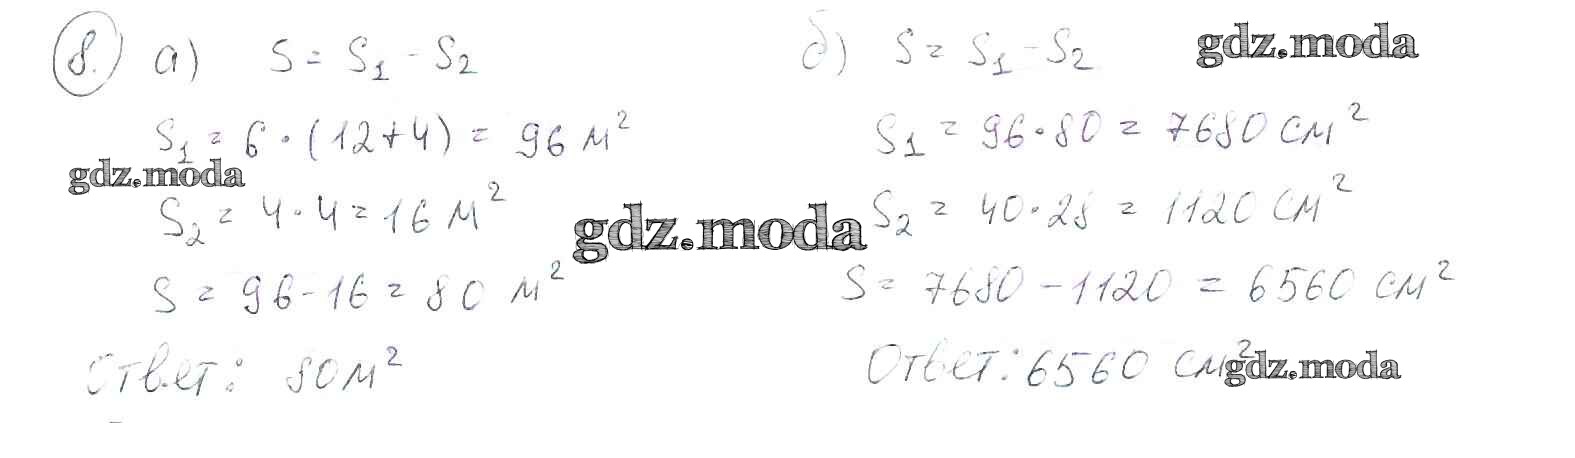 8. а) S = S₁ - S₂
S₁ = 6 · (12+4) = 96 м²
gdz.moda
S₂ = 4 · 4 = 16 м²
S = 96 - 16 = 80 м²
Ответ: 80 м²
gdz.moda
б) S = S₁ - S₂
gdz.moda
S₁ = 96 · 80 = 7680 см²
S₂ = 40 · 28 = 1120 см²
S = 7680 - 1120 = 6560 см²
Ответ: 6560 см²
gdz.moda